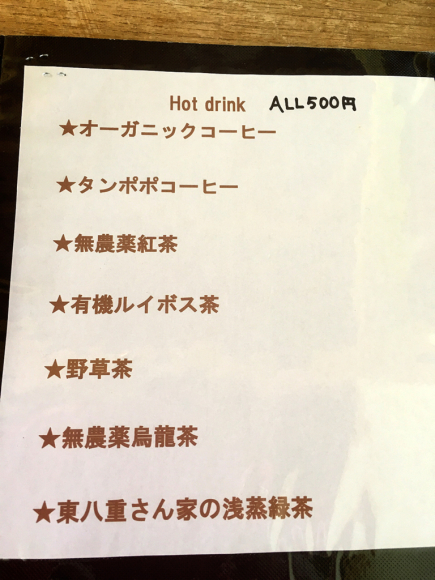 Hot drink ALL500円
★オーガニックコーヒー
★タンポポコーヒー
★無農薬紅茶
★有機ルイボス茶
★野草茶
★無農薬烏龍茶
★東八重さん家の浅蒸緑茶